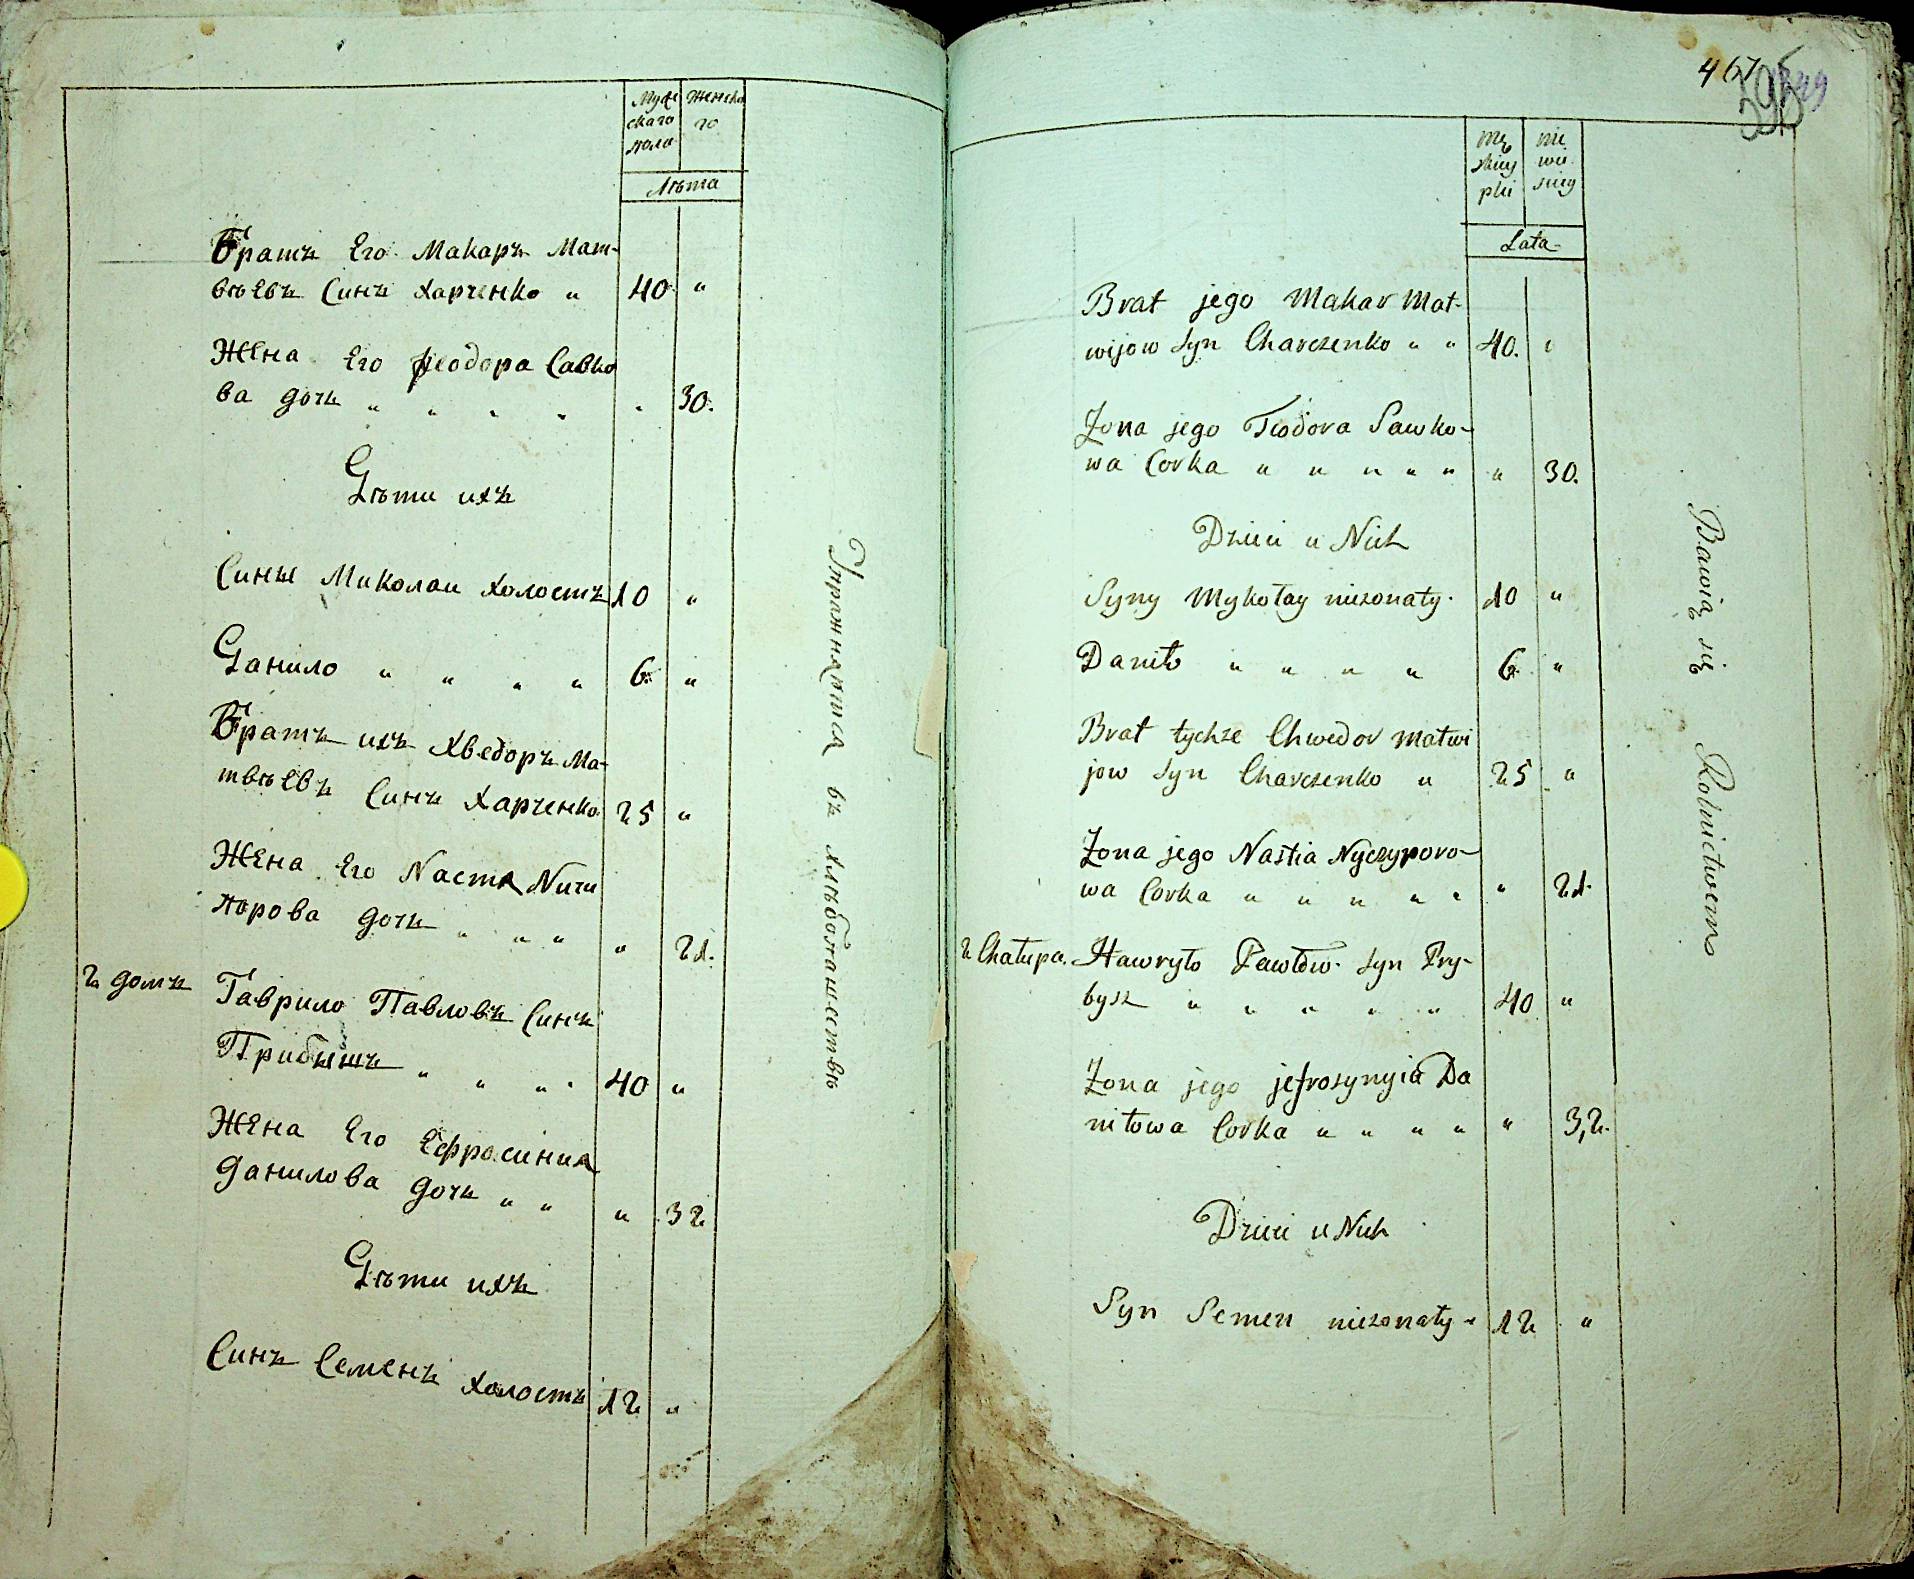 Муже Женска
скаго го
пола
Лѣта
Братъ Его Макаръ Мат-
вѣевъ Синъ Харченко „ 40 „
Жена Его Феодора Савко
ва дочь „ „ „ „ „ 30.
Дѣти ихъ
Сины Миколаи холостъ 10 „
Данило „ „ „ „ 6. „
Братъ ихъ Хведоръ Ма-
твѣевъ Синъ Харченко 25 „
Жена Его Nастя Nичи
порова дочь „ „ „ „ 21.
2 домъ Гаврило Павловъ Синъ
Прибышъ „ „ „ „ 40 „
Жена Его Ефросиния
Данилова дочь „ „ „ 32
Дѣти ихъ
Синъ Семенъ холостъ 12 „
Упражняются въ хлѣбопашествѣ
467
Lata
Brat jego Makar Mat-
wijow Syn Charczenko „ „ 40. „
Zona jego Tiodora Sawko-
wa Corka „ „ „ „ „ „ 30.
Dzieci u Nich
Syny Mykołay niezonaty. 10 „
Daniło „ „ „ „ 6 „
Brat tychże Chwedor Matwi
jow Syn Charczenko „ 25 „
Zona jego Nastia Nyczyporo-
wa Corka „ „ „ „ „ „ 21.
2 Chałupa. Hawryło Pawłow. Syn Pry-
bysz „ „ „ „ „ 40 „
Zona jego jefrosynyia Da
niłowa Corka „ „ „ „ „ 32.
Dzieci u Nich
Syn Semen niezonaty „ 12 „
Bawią się Rolnictwem